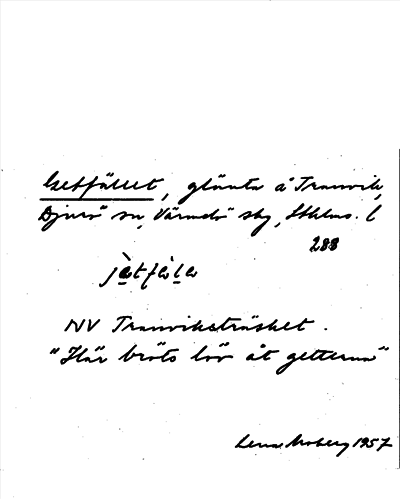 Getfället, glänta å Tranvik,
Djurö sn, Värmdö skg, Sthlms. l
288
jàtfàla
NV Tranviksträsket.
"Här bröts löv åt getterna"
Lena Moberg 1957